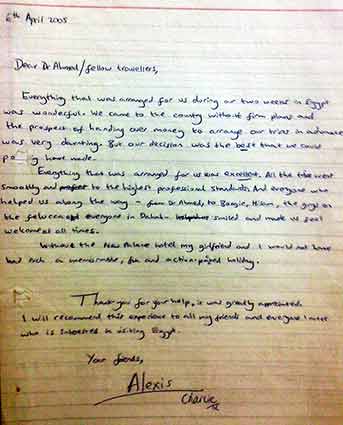 6th April 2005
Dear Dr Ahmed/fellow travellers,
Everything that was arranged for us during our two weeks in Egypt
was wonderful. We came to the county without firm plans and
the prospect of handing over money to arrange our trips in advance
was very daunting. But our decision was the best that we could
have made.
Everything that was arranged for us was excellent. All the trips went
smoothly and to the highest professional standards. And everyone who
helped us along the way - from Dr Ahmed, to the guys on
the felucca and everyone in Dahab smiled and made us feel
welcome at all times.
Without the New Palace hotel my girlfriend and I would not have
had such a memorable, fun and action-packed holiday.
Thank you for your help, it was greatly appreciated.
I will recommend this experience to all my friends and everyone I meet
who is interested in visiting Egypt.
Your friends,
Alexis
Charlie